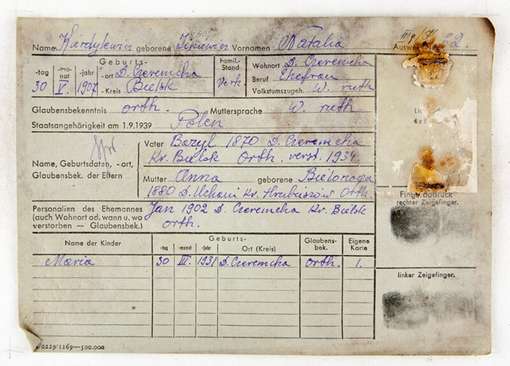 Name Kurdykiewicz geborene Vornamen Natalia
Ausw
-tag -monat -jahr Geburts-
30 V. 1907 -ort D. Czeremcha
-Kreis Bielsk
Famil.-Stand
Verh.
Wohnort D. Czeremcha
Beruf Ehefrau
Volkstumszugeh. W. ruth
Glaubensbekenntnis orth. Muttersprache W. ruth
Staatsangehörigkeit am 1.9.1939 Polen
Name, Geburtsdaten, -ort,
Glaubensbek. der Eltern
Vater Bazyl 1870 D. Czeremcha
Kr. Bielsk Orth. verst. 1934
Mutter Anna geborene
1880 D. Kr. Hrubieszów Orth.
Personalien des Ehemannes
(auch Wohnort od. wann u. wo
verstorben — Glaubensbek.)
Jan 1902 D. Czeremcha Kr. Bielsk
orth.
Fingerabdruck
rechter Zeigefinger.
Name der Kinder
Geburts-
-tag -monat -jahr Ort (Kreis)
Glaubens-
bek.
Eigene
Karte
Maria 30 1931 D. Czeremcha Orth. 1.
linker Zeigefinger.